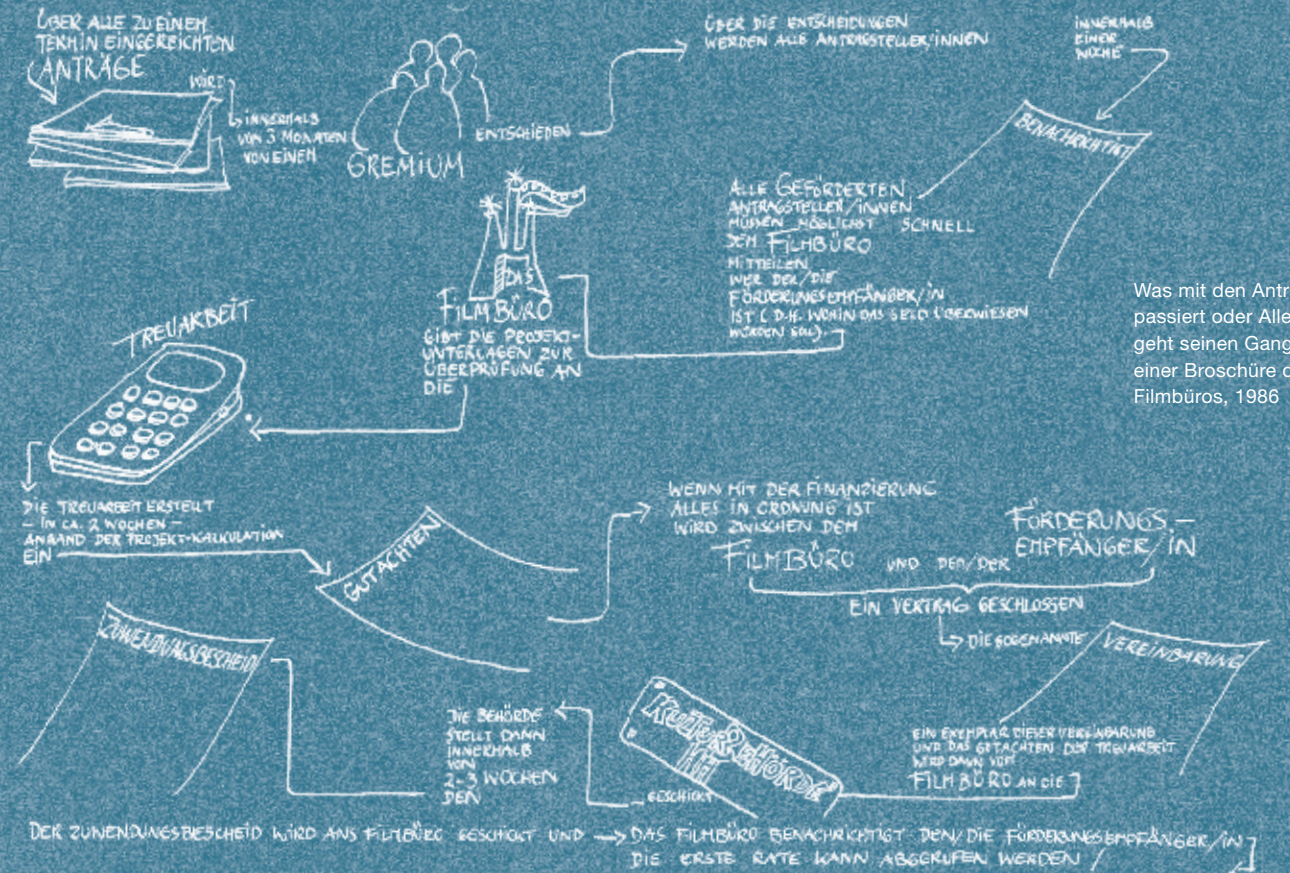 ÜBER ALLE ZU EINEM
TERMIN EINGEREICHTEN
ANTRÄGE
WIRD
INNERHALB
VON 3 MONATEN
VON EINEM
GREMIUM
ENTSCHIEDEN
ÜBER DIE ENTSCHEIDUNGEN
WERDEN ALLE ANTRAGSTELLER/INNEN
INNERHALB
EINER
WOCHE
BENACHRICHTIGT
ALLE GEFÖRDERTEN
ANTRAGSTELLER/INNEN
MÜSSEN MÖGLICHST SCHNELL
DEM FILMBÜRO
MITTEILEN
WER DER/DIE
FÖRDERUNGSEMPFÄNGER/IN
IST (D.H. WOHIN DAS GELD ÜBERWIESEN
WERDEN SOLL).
DAS
FILMBÜRO
GIBT DIE PROJEKT-
UNTERLAGEN ZUR
ÜBERPRÜFUNG AN
DIE
TREUARBEIT
Was mit den Antr
passiert oder Alle
geht seinen Gang
einer Broschüre d
Filmbüros, 1986
DIE TREUARBEIT ERSTELLT
– IN CA. 2 WOCHEN –
ANHAND DER PROJEKT-KALKULATION
EIN
GUTACHTEN
WENN MIT DER FINANZIERUNG
ALLES IN ORDNUNG IST
WIRD ZWISCHEN DEM
FILMBÜRO UND DEM/DER
FÖRDERUNGS-
EMPFÄNGER/IN
EIN VERTRAG GESCHLOSSEN
DIE SOGENANNTE
VEREINBARUNG
EIN EXEMPLAR DIESER VEREINBARUNG
UND DAS GUTACHTEN DER TREUARBEIT
WIRD DANN VOM
FILMBÜRO AN DIE
KULTURBEHÖRDE
HH
GESCHICKT
DIE BEHÖRDE
STELLT DANN
INNERHALB
VON
2-3 WOCHEN
DEN
ZUWENDUNGSBESCHEID
DER ZUWENDUNGSBESCHEID WIRD ANS FILMBÜRO GESCHICKT UND
DAS FILMBÜRO BENACHRICHTIGT DEN/DIE FÖRDERUNGSEMPFÄNGER/IN
DIE ERSTE RATE KANN ABGERUFEN WERDEN